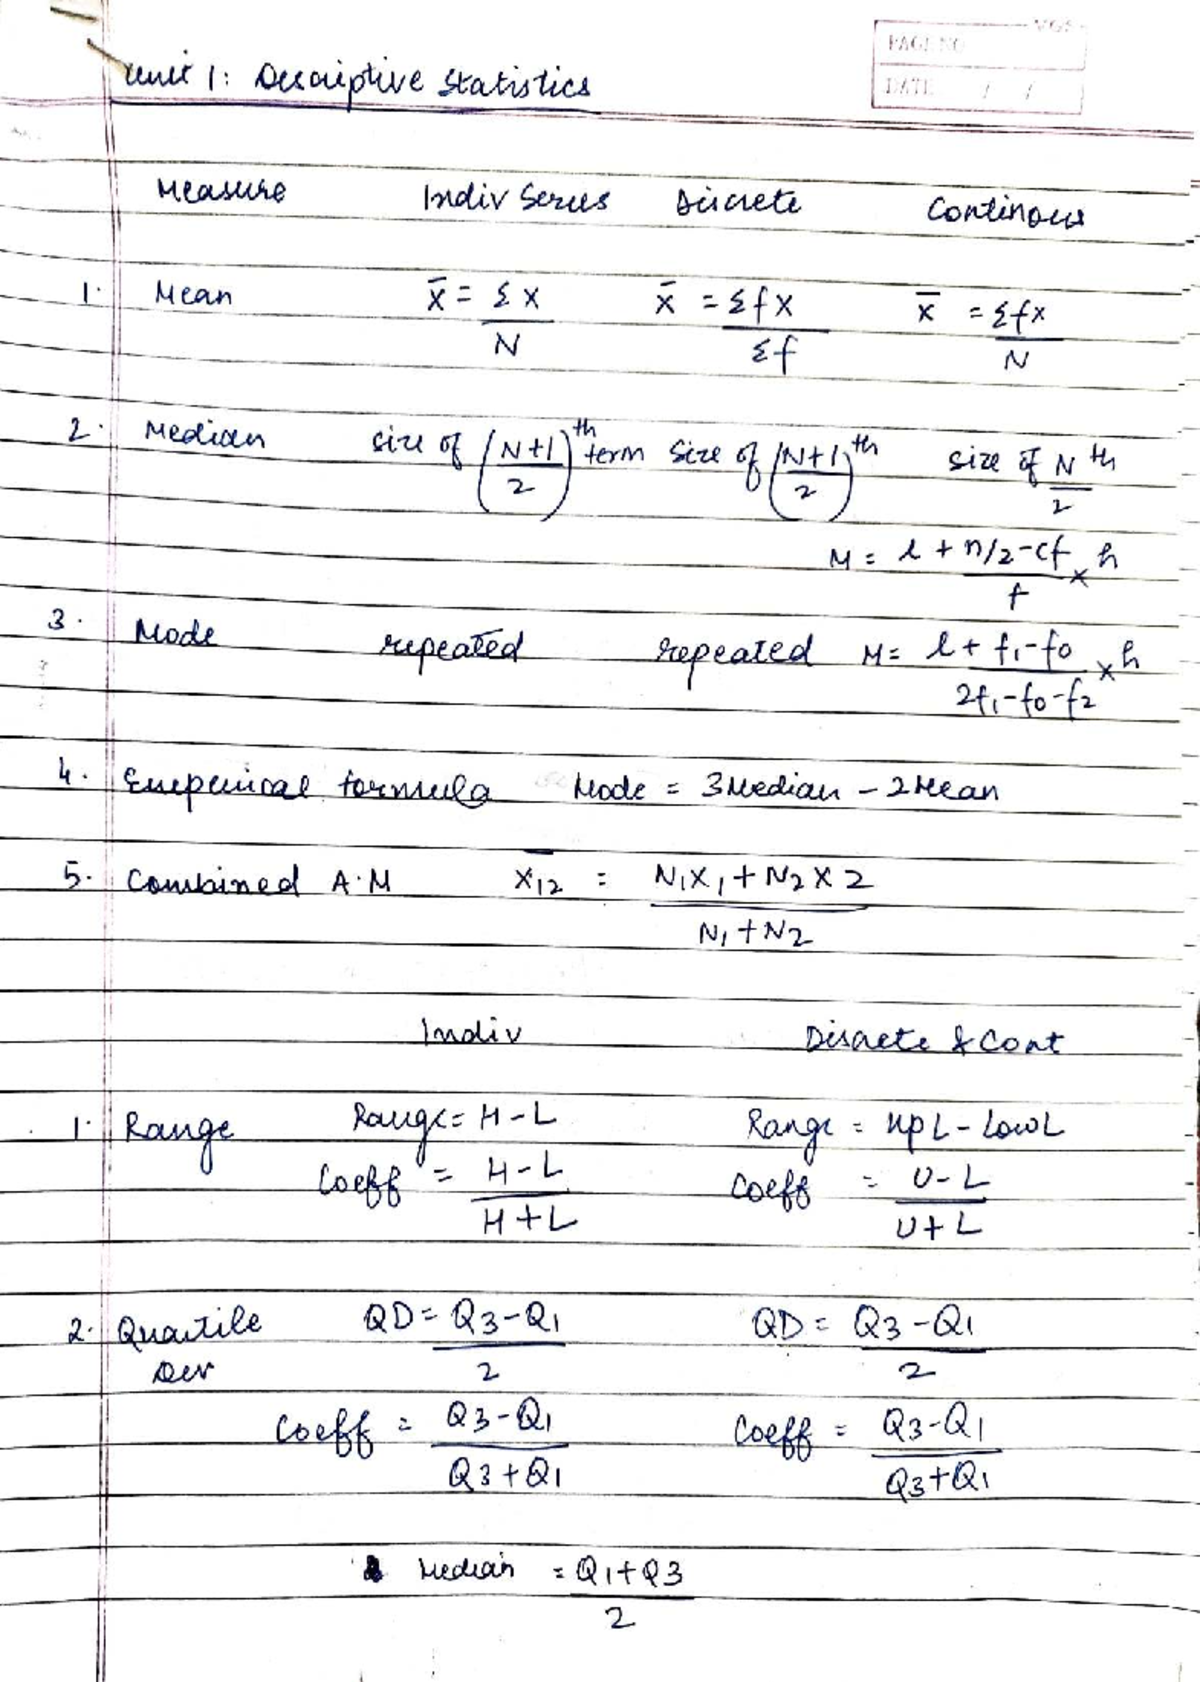 VGS
PAGE NO
DATE / /
Unit 1: Descriptive Statistics
Measure Indiv Series Discrete Continous
1. Mean x̄ = Σx/N x̄ = Σfx/Σf x̄ = Σfx/N
2. Median size of (N+1/2)th term size of (N+1/2)th size of N/2 th
M = l + n/2-cf/f × h
3. Mode repeated repeated M = l + f1-f0/2f1-f0-f2 × h
4. Emperical formula Mode = 3Median - 2Mean
5. Combined A.M x̄12 = N1X1 + N2X2/N1+N2
Indiv Discrete & Cont
1. Range Range = H-L Range = UpL - LowL
Coeff = H-L/H+L Coeff = U-L/U+L
2. Quartile QD = Q3-Q1/2 QD = Q3-Q1/2
Dev
Coeff = Q3-Q1/Q3+Q1 Coeff = Q3-Q1/Q3+Q1
Median = Q1+Q3/2